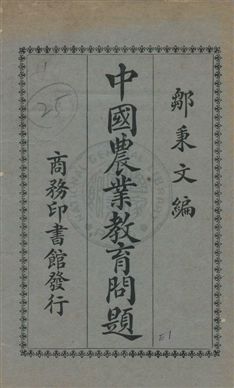 鄒秉文編
中國農業教育問題
商務印書館發行
25
E1